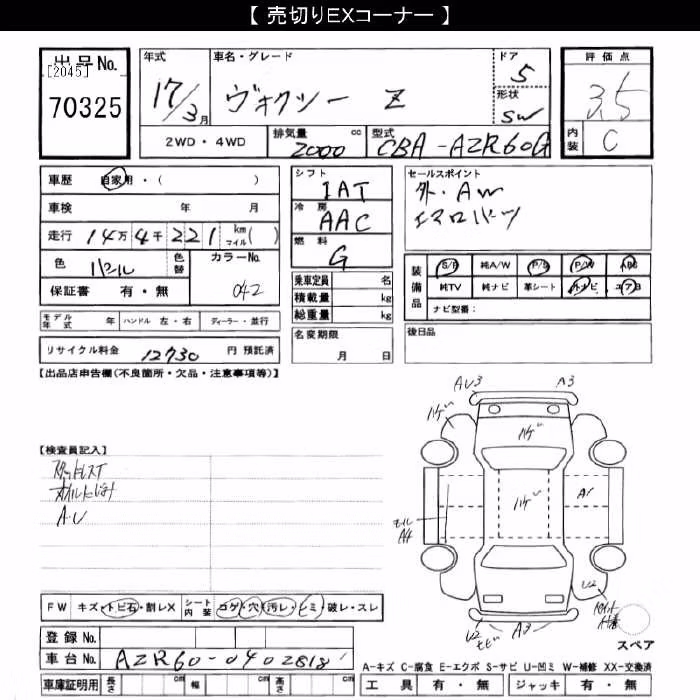 【 売切りEXコーナー 】
出品No.
[2045]
70325
年式
17/3月
車名・グレード
ヴォクシー Z
ドア
5
形状
SW
評価点
3.5
内装 C
2WD・4WD
排気量 cc
2000
型式
CBA-AZR60G
車歴 自家用・( )
車検 年 月
走行 14万4千221 km マイル( )
色 パール 色替
カラーNo.
042
保証書 有・無
シフト
IAT
冷房
AAC
燃料
G
乗車定員 名
積載量 kg
総重量 kg
名変期限
月 日
セールスポイント
外・AW
エアロパーツ
装備品
S/R 純A/W P/S P/W ABS
純TV 純ナビ 革シート 外ナビ エアB
ナビ型番:
後日品
モデル年式 年 ハンドル 左・右 ディーラー・並行
リサイクル料金 12730 円 預託済
【出品店申告欄(不良箇所・欠品・注意事項等)】
【検査員記入】
オイルにじみ
A・U
AU3 A3
ハゲ
ハゲ
ハゲ
A1
モール
A4
U2
U2
A3
スペア
FW キズ・トビ石・割レX シート内装 コゲ・穴・汚レ・シミ・破レ・スレ
登録No.
車台No. AZR60-0402818
A-キズ C-腐食 E-エクボ S-サビ U-凹ミ W-補修 XX-交換済
車庫証明用 長さ cm 幅 cm 高さ cm
工具 有・無 ジャッキ 有・無